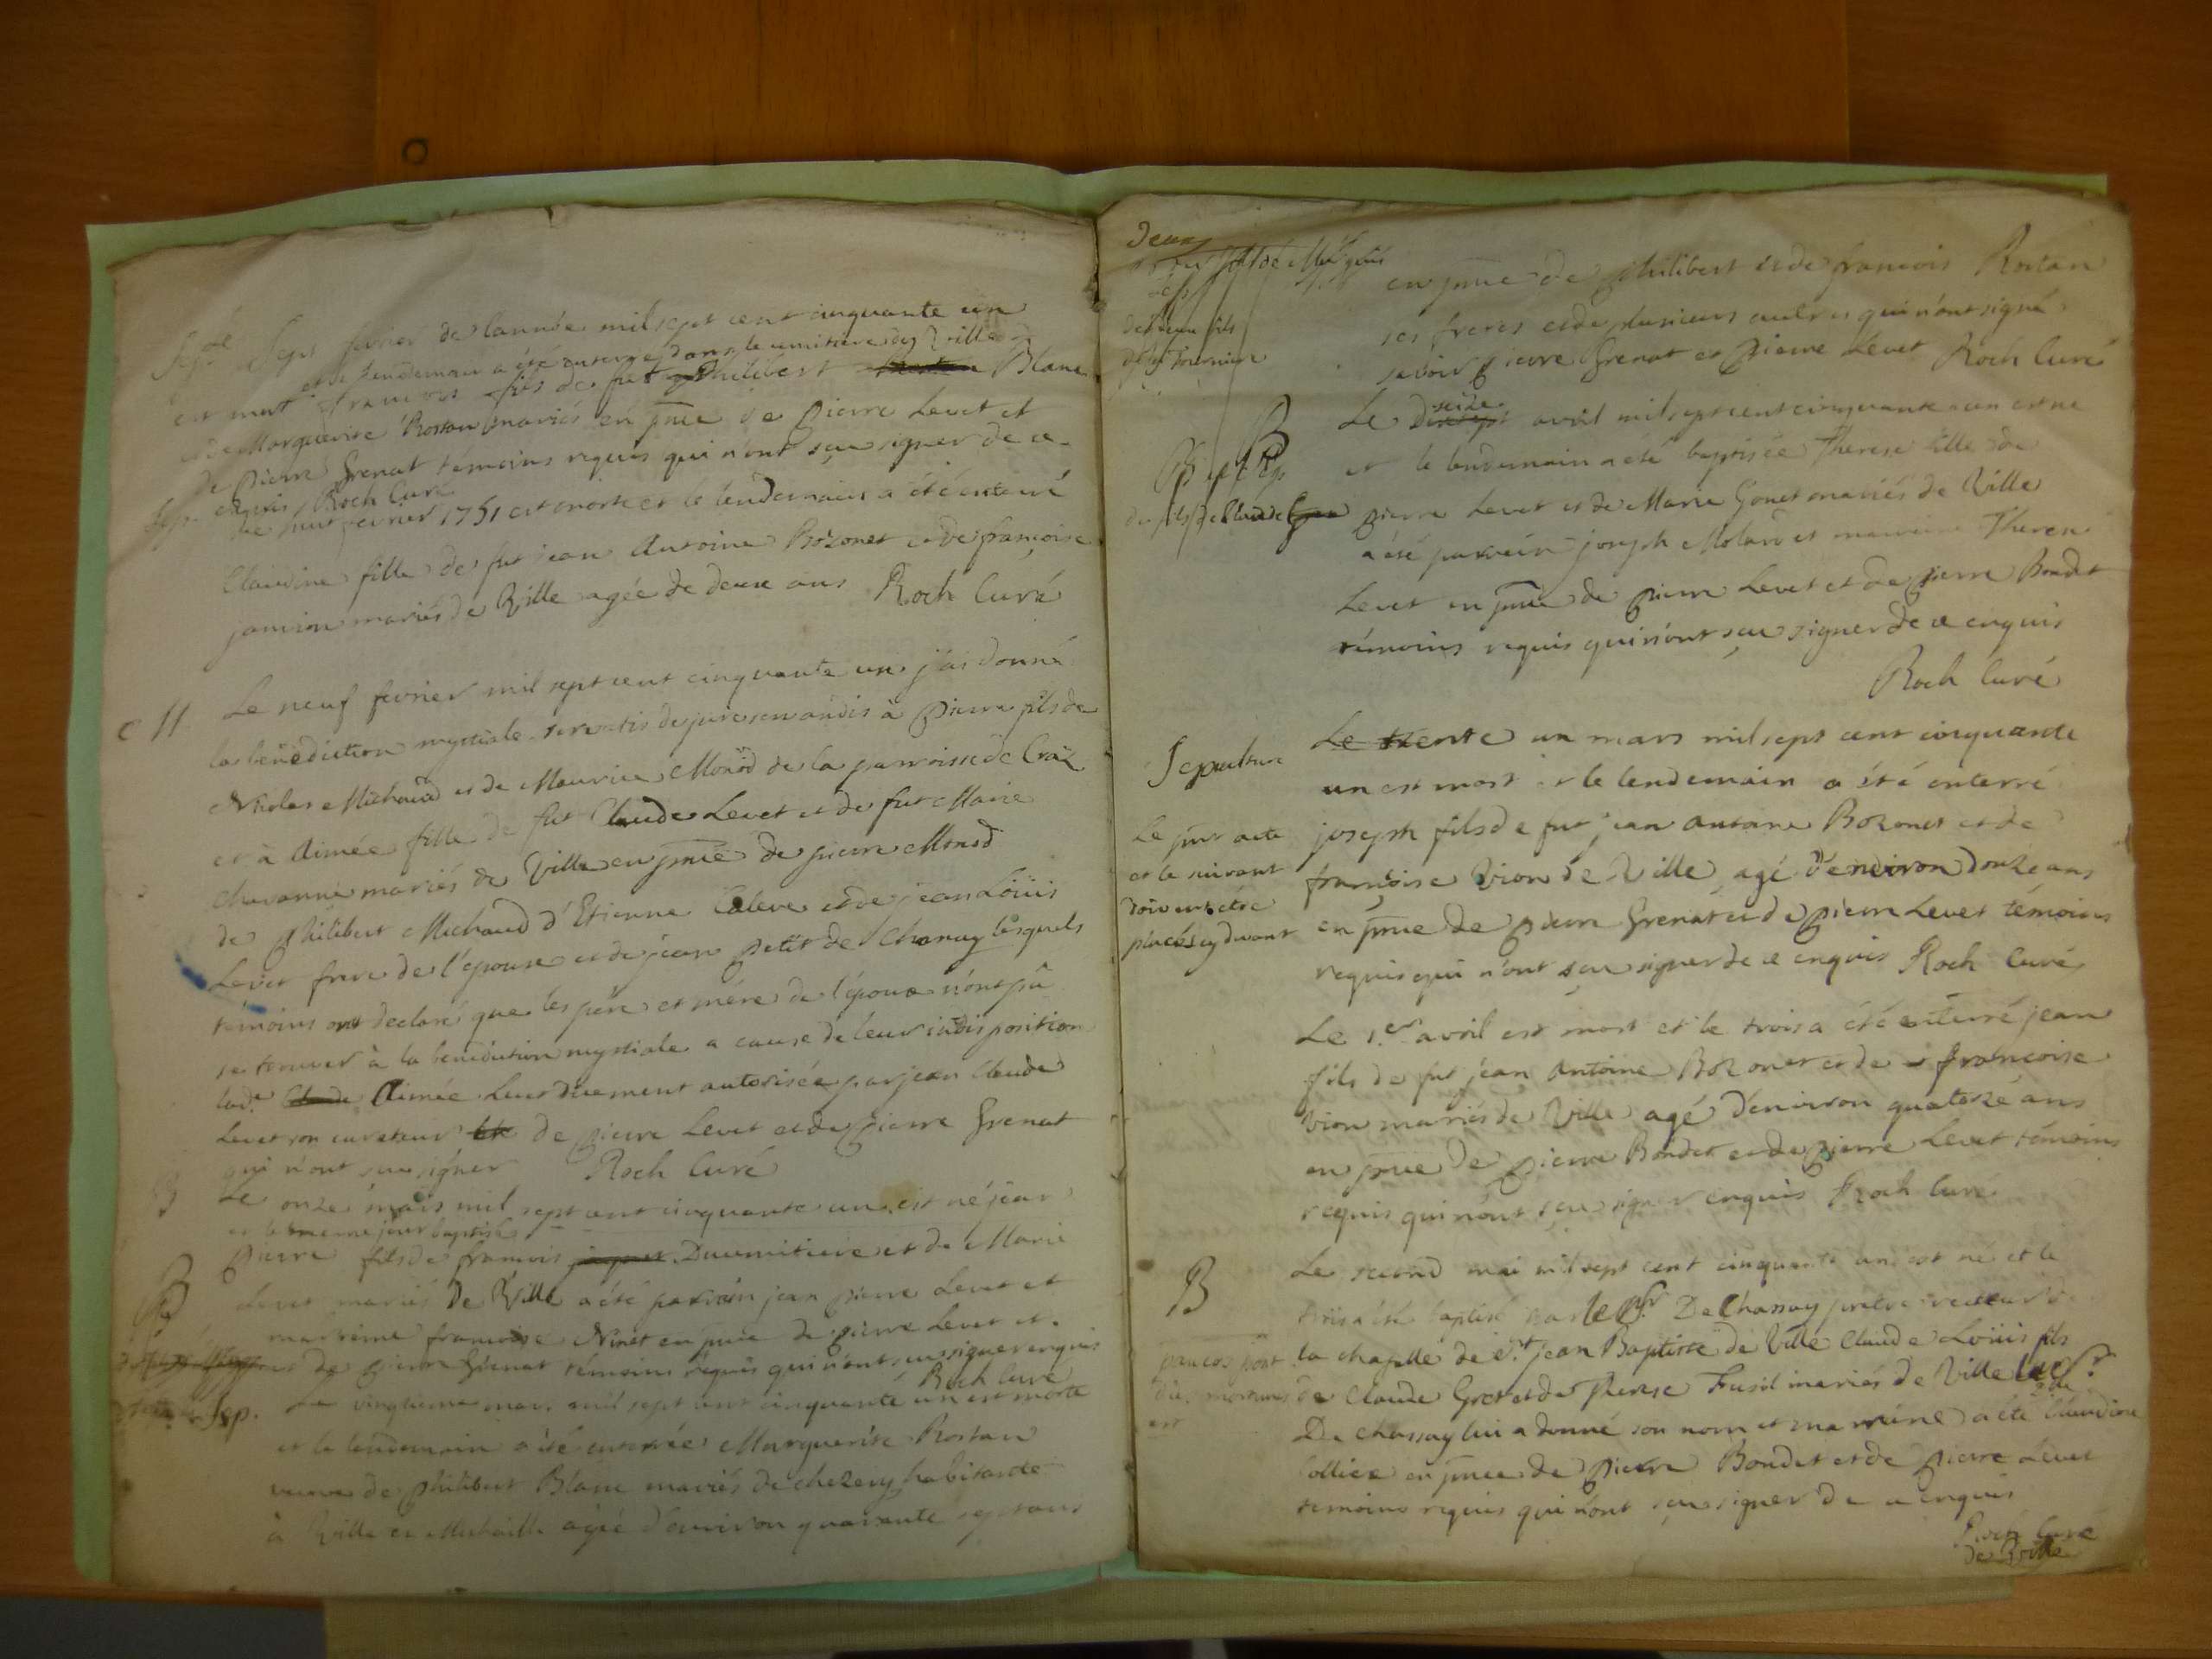 Sept fevrier de lannée mil sept cent cinquante un
et le lendemain a été enterré dans le cimitiere de Ville
est mort francois fils de fut philibert Blanc
et de Marguerite Rostan mariés en pnce de pierre Levet et
de pierre Grenat témoins requis qui n'ont sçeu signer de ce
enquis Roch Curé
Sep. Le huit fevrier 1751 est morte et le lendemain a été enterré
Claudine fille de fut jean Antoine Bozonet et de françoise
mariés de Ville agée de deux ans Roch Curé
M Le neuf fevrier mil sept cent cinquante un j'ai donné
la bénédiction nuptiale servatis de jure servandis à pierre fils de
Nicolas Michaud et de Maurice Monod de la parroisse de Craz
et à Aimée fille de fut Claude Levet et de fut Marie
Chavanne mariés de Ville en pnce de pierre Monod
de philibert Michaud d'Etienne Caleve et de jean Loüis
Levet frere de l'epouse et de jean petit de Chanay lesquels
témoins ont declaré que les père et mére de l'époux n'ont pû
se trouver à la bénédiction nuptiale a cause de leur indisposition
lad.e Aimée Levet düement autorisée par jean Claude
Levet son curateur de pierre Levet et de pierre Grenat
qui n'ont sceu signer Roch Curé
Le onze mars mil sept cent cinquante un est né jean
et le meme jour baptisé
B pierre fils de francois Ducimitiere et de Marie
Levet mariés de Ville a été parrain jean pierre Levet et
marreine francoise Ninet en pnce de pierre Levet et
de pierre Grenat témoins requis qui n'ont sceu signer enquis
Roch Curé
Sep. Le vingtieme mars mil sept cent cinquante un est morte
et le lendemain a été enterrée Marguerite Rostan
veuve de philibert Blanc mariés de chezery habitante
à Ville en Michaille agée d'environ quarante sept ans
Deux
en pnce de philibert et de francois Rostan
ses freres et de plusieurs autres qui n'ont signé
savoir pierre Grenat et pierre Levet Roch Curé
seize
Le dixsept avril mil sept cent cinquante un est né
et le lendemain a été baptisée Therese fille de
pierre Levet et de Marie Gonet mariés de Ville
a été parrein joseph Molard et marreine Therese
Levet en pnce de pierre Levet et de pierre Bondet
témoins requis qui n'ont sçeu signer de ce enquis
Roch Curé
Sepulture
Le trente un mars mil sept cent cinquante
un est mort et le lendemain a été enterré
joseph fils de fut jean antoine Bozonet et de
françoise Vion de Ville agé d'environ douze ans
en pnce de pierre Grenat et de pierre Levet témoins
requis qui n'ont sçeu signer de ce enquis Roch Curé
Le pnt acte
et le suivant
doivent étre
placés cy devant
Le 1.er avril est mort et le trois a été enterré jean
fils de fut jean Antoine Bozonet et de francoise
Vion mariés de Ville agé d'environ quatorze ans
en pnce de pierre Bondet et de pierre Levet témoins
requis qui n'ont sçeu signer enquis Roch Curé
B
Le second mai mil sept cent cinquante un est né et le
trois a été baptisé par le Sr. De Chassay pretre recteur de
la chapelle de St. jean Baptiste de Ville Claude Loüis fils
de Claude Gret et de Therese Fusil mariés de Ville led Sr
De chassay lui a donné son nom et marreine a été Claudine
Collier en pnce de pierre Bondet et de pierre Levet
temoins requis qui n'ont sçeu signer de ce enquis
Roch Curé
de Ville